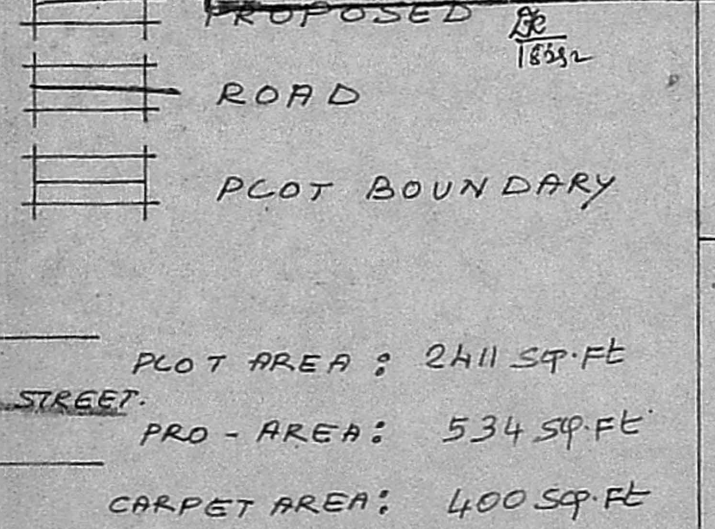 PROPOSED
ROAD
PLOT BOUNDARY
PLOT AREA : 2411 SQ.Ft
STREET.
PRO - AREA : 534 SQ.Ft
CARPET AREA : 400 SQ.Ft